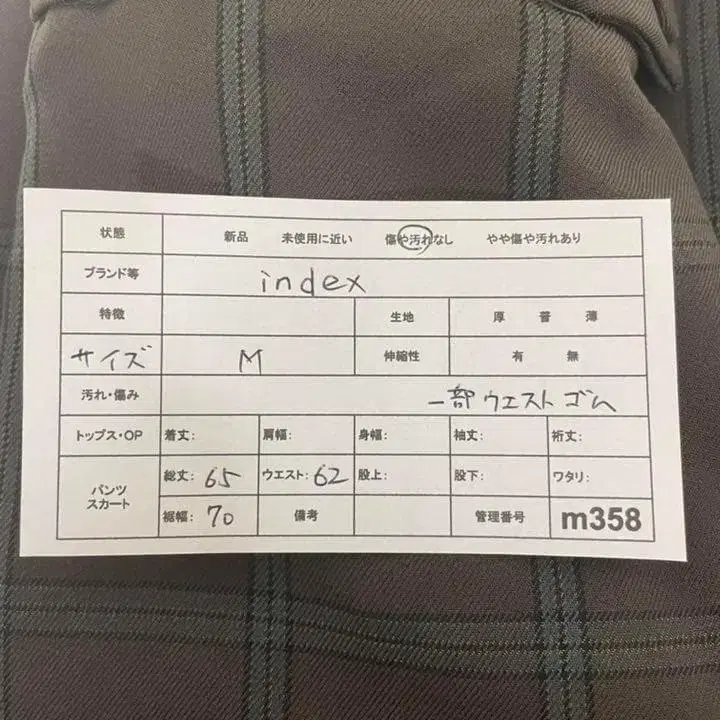 状態 新品 未使用に近い 傷や汚れなし やや傷や汚れあり
ブランド等 index
特徴 生地 厚 普 薄
サイズ M 伸縮性 有 無
汚れ・傷み 一部ウエストゴム
トップス・OP 着丈: 肩幅: 身幅: 袖丈: 裄丈:
パンツ
スカート
総丈: 65 ウエスト: 62 股上: 股下: ワタリ:
裾幅: 70 備考 管理番号 m358